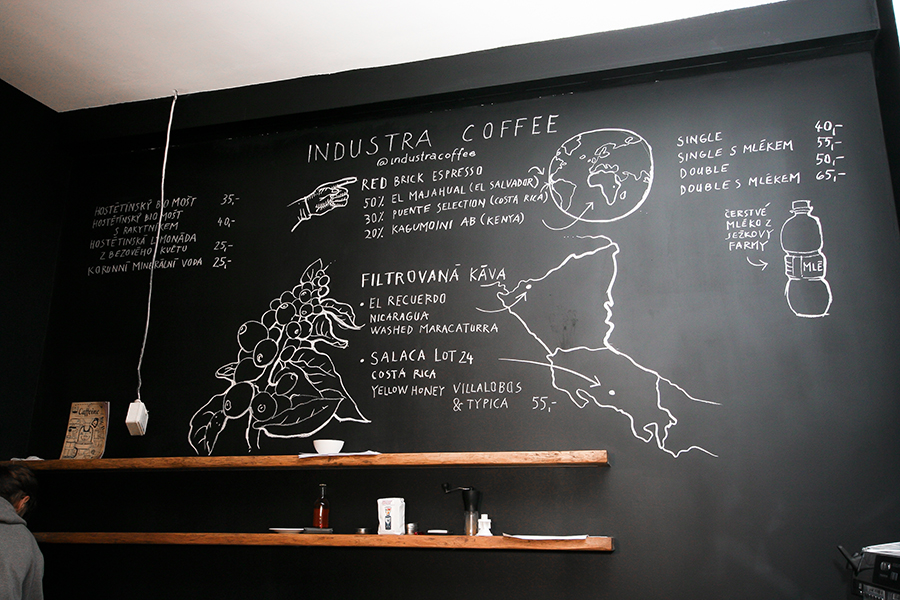 INDUSTRA COFFEE
@industracoffee
HOSTĚTÍNSKÝ BIO MOŠT 35,-
HOSTĚTÍNSKÝ BIO MOŠT
S RAKYTNÍKEM 40,-
HOSTĚTÍNSKÁ LIMONÁDA
Z BEZOVÉHO KVĚTU 25,-
KORUNNÍ MINERÁLNÍ VODA 25,-
RED BRICK ESPRESSO
50% EL MAJAHUAL (EL SALVADOR)
30% PUENTE SELECTION (COSTA RICA)
20% KAGUMOINI AB (KENYA)
FILTROVANÁ KÁVA
• EL RECUERDO
NICARAGUA
WASHED MARACATURRA
• SALACA LOT 24
COSTA RICA
YELLOW HONEY VILLALOBOS
& TYPICA 55,-
SINGLE 40,-
SINGLE S MLÉKEM 55,-
DOUBLE 50,-
DOUBLE S MLÉKEM 65,-
ČERSTVÉ
MLÉKO Z
JEŽKOVY
FARMY
MLÉ
Caffeine